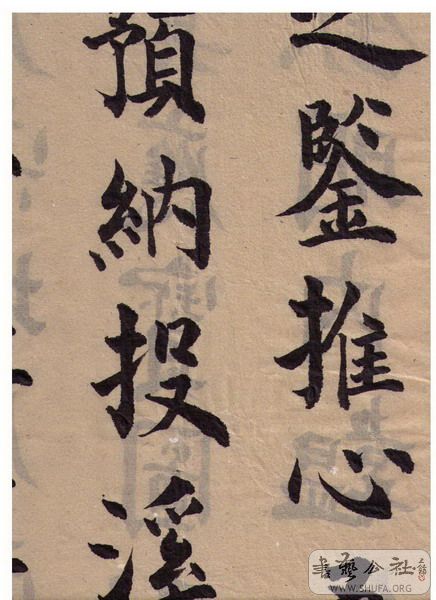 之鑒推心
預納投
書藝公社
WWW.SHUFA.ORG